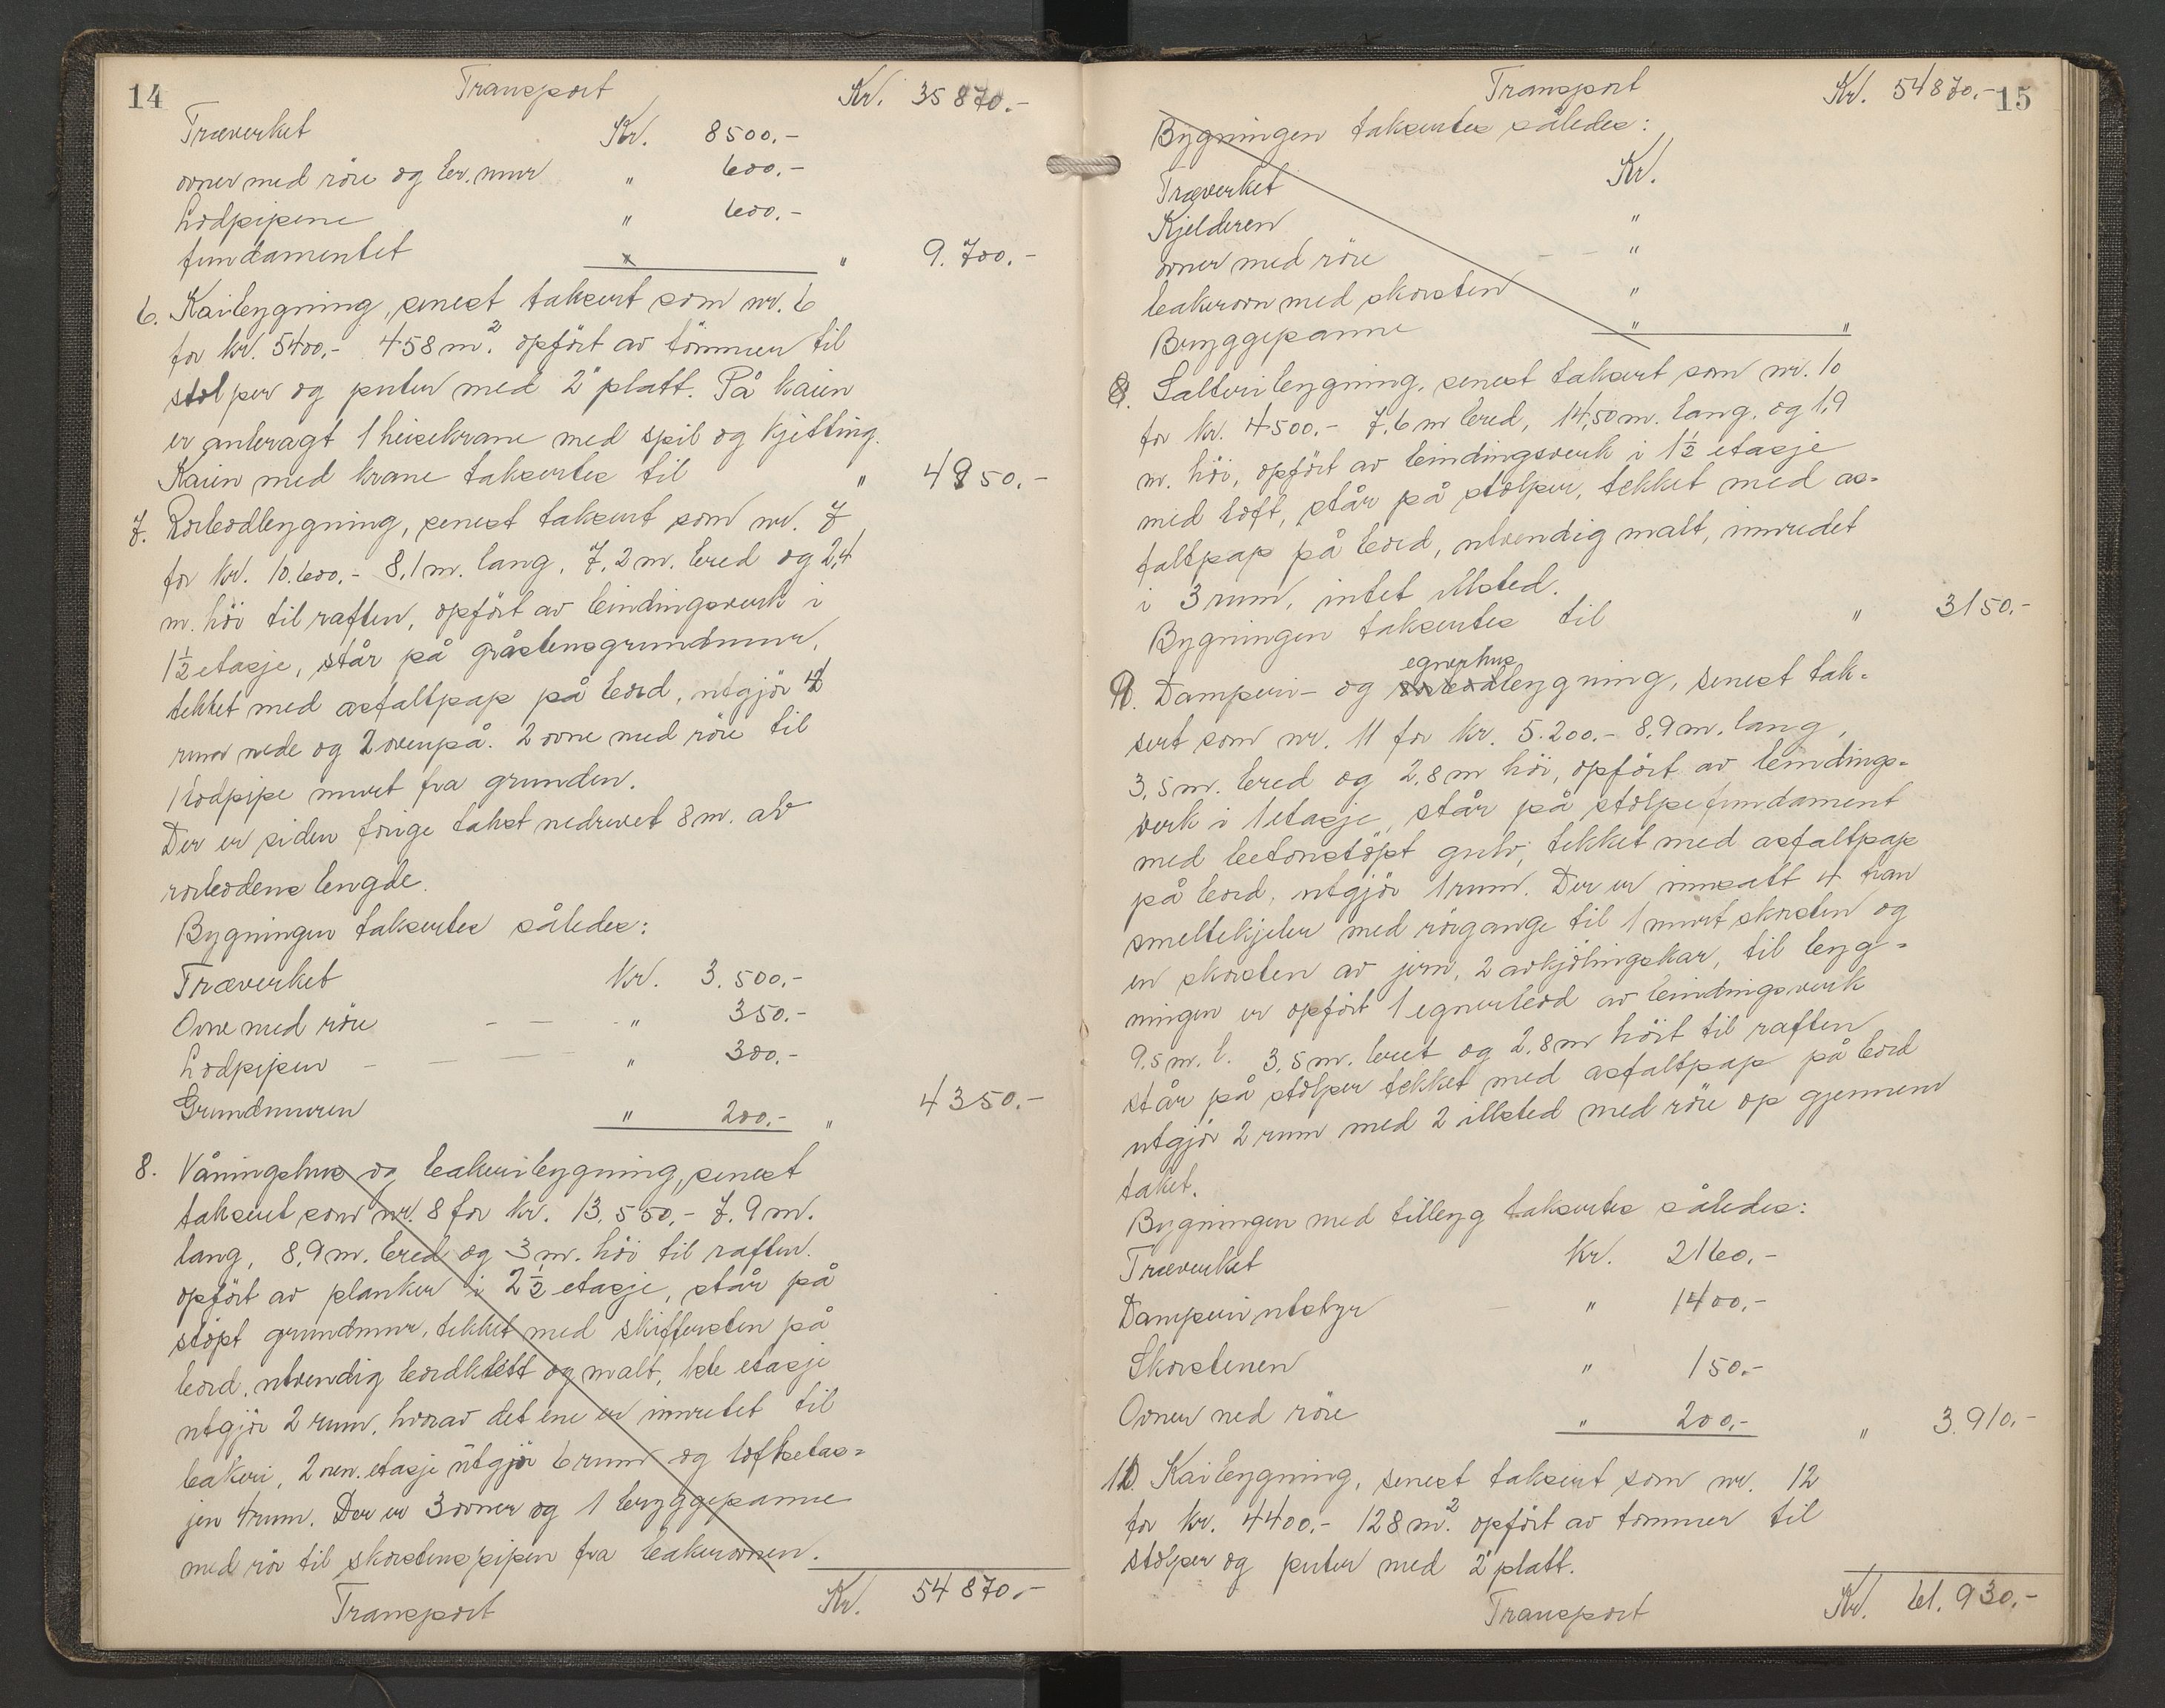 14
Transport Kr. 35 870.-
Træverket Kr. 8500.-
ovner med röre og br. mur " 600.-
Lodpipene " 600.-
fundamentet " " 9.700.-
6. Kaibygning, senest taksert som nr. 6
for kr. 5400,- 458 m². opfört av tömmer til
stolper og puter med 2" platt. På kaien
er anbragt 1 heisekrane med spil og kjetting.
Kaien med krane takseres til " 4950.-
7. Rorbodbygning, senest taksert som nr. 7
for kr. 10.600,- 8,1 m. lang, 7,2 m. bred og 2,4
m. höi til raften, opfört av bindingsverk i
1½ etasje, står på gråstensgrundmur,
tekket med asfaltpap på bord, utgjör 2
rum nede og 2 ovenpå. 2 ovne med röre til
1 lodpipe muret fra grunden.
Der er siden forige takst nedrevet 8 m. av
rorbodens lengde.
Bygningen takseres således:
Træverket kr. 3.500.-
Ovne med röre " 350.-
Lodpipen " 300.-
Grundmuren " 200.- " 4350.-
8. Våningshus og bakeribygning, senest
taksert som nr. 8 for kr. 13.550,- 7.9 m.
lang, 8,9 m. bred og 3 m. höi til raften.
opfört av planker i 2½ etasje, står på
stöpt grundmur, tekket med skiffersten på
bord, utvendig bordklett og malt, 1ste etasje
utgjör 2 rum, hvorav det ene er inredet til
bakeri, 2nen. etasje utgjör 6 rum og loftsetas=
jen 4 rum. Der er 3 ovner og 1 bryggepanne
med rör til skorstenspipen fra bakerovnen.
Transport Kr. 54 870.-
Transport Kr. 54870.- 15
Bygningen takseres således:
Træverket Kr.
Kjelderen "
ovner med röre "
bakerovn med skorsten "
Bryggepanne " "
8. Salteribygning, senest taksert som nr. 10
for kr. 4500.- 7.6 m bred, 14,50 m. lang, og 1,9
m. höi, opfört av bindingsverk i 1½ etasje
med loft, står på stolper, tekket med as=
faltpap på bord, utvendig malt, inredet
i 3 rum, intet illsted.
Bygningen takseres til " 3150.-
egnerhus
9. Damperi- og rorbodbygning, senest tak=
sert som nr. 11 for kr. 5.200.- 8.9 m. lang,
3,5 m. bred og 2,8 m höi, opfört av bindings=
verk i 1 etasje, står på stolpefundament
med betonstöpt gulv, tekket med asfaltpap
på bord, utgjör 1 rum. Der er innsatt 4 tran
smeltekjeler med rörgange til 1 murt skorsten og
en skorsten av jern, 2 avkjölingskar, til byg=
ningen er opfört 1 egnerbod av bindingsverk
9.5 m. l. 3,5 m. bret og 2.8 m höit til raften
står på stolper tekket med asfaltpap på bord
utgjör 2 rum med 2 illsted med röre op gjennem
taket.
Bygningen med tilbyg takseres således:
Træverket kr. 2160.-
Damperi utstyr " 1400.-
Skorstenen " 150.-
Ovner med röre " 200.- " 3.910.-
10. Kaibygning, senest taksert som nr. 12
for kr. 4400.- 128 m². opfört av tömmer til
stolper og puter med 2" platt.
Transport Kr. 61.930.-